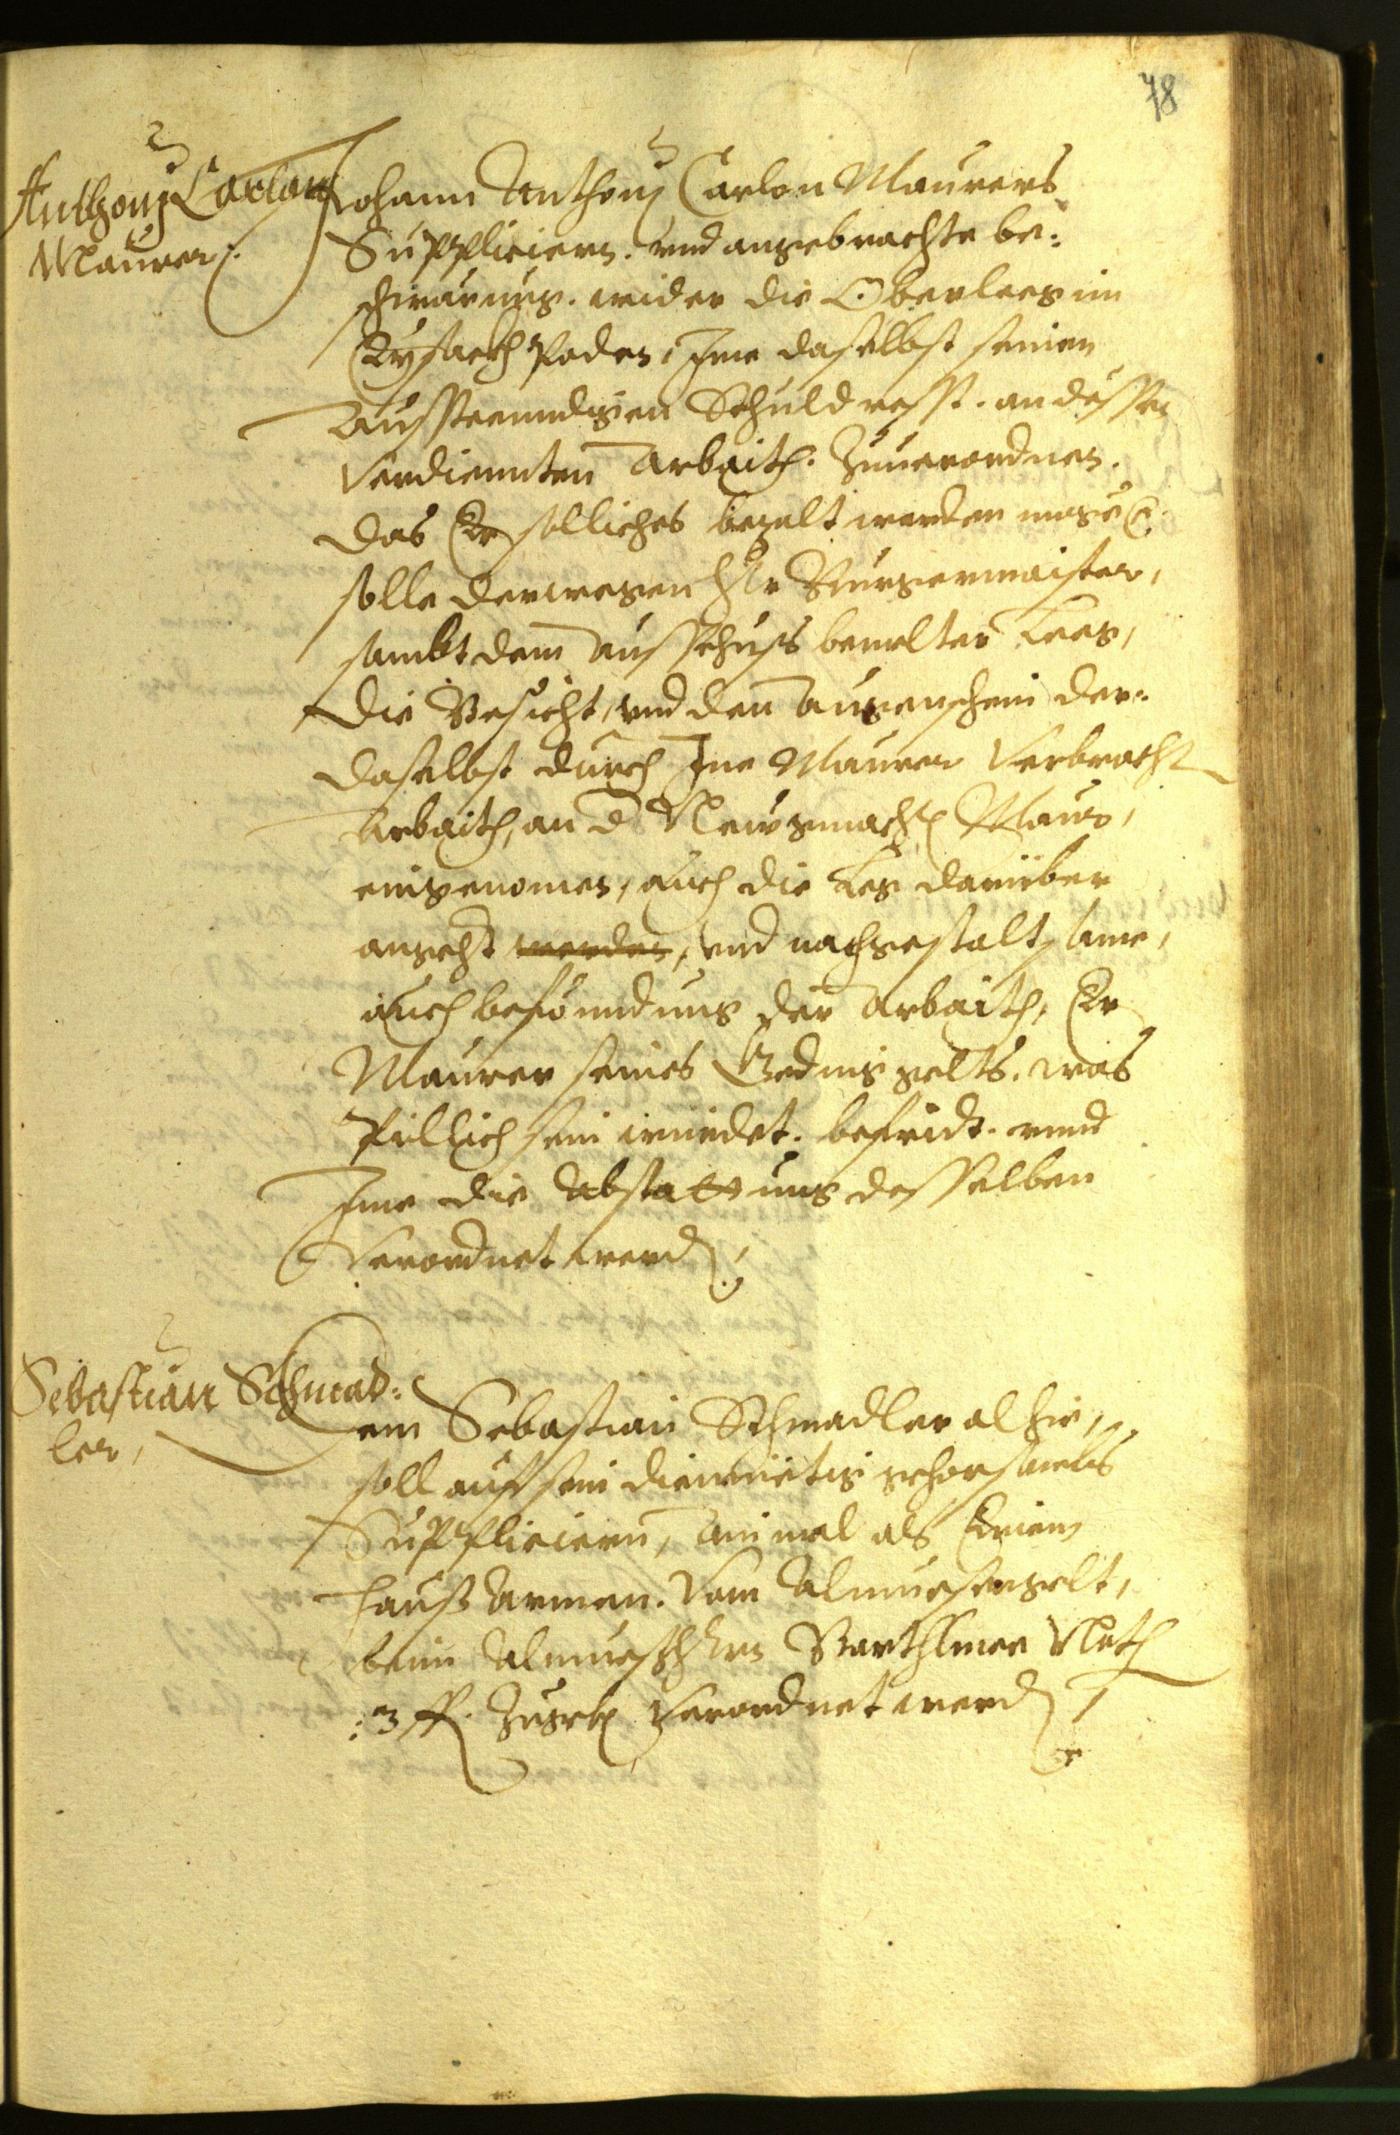 78
Anthonj Carlon
Maurer.
Johann Anthonj Carlon Maurers
Suppliciern. vnd angebrachte be=
schwärung. wider die Oberleeg im
Eysackh Poden, Ime daselbst seinen
Ausstenndigen Schuld resst. an dessen
verdiennten Arbaith. Zuuerordnen.
das Er solliches bezalt werden möge
solle derwegen Hr Burgermaister,
sambt dem Ausschuss bemelter Leeg,
die Besicht, vnd den Augenschein der=
daselbst durch Ine Maurer verbracht
Arbaith, an d Neugemacht Maur,
eingenomen, auch die Leg darüber
angehört werden, vnd nachgestaltsame,
auch befünndung der Arbaith, Er
Maurer seines Gedinggelts. was
Pillich sein würdet. befridt. vnnd
Ime die Abstattung desselben
verordnet werd,
Sebastian Schmad=
ler,
Dem Sebastian Schmadler alhie,
soll auf sein diemietig gehorsambs
Suppliciern, ainmal als Einem
Hauß Armen. vom Almuesengelt,
beim Almuesh Bartlmee
:3 fl. Zugebn verordnet werd,